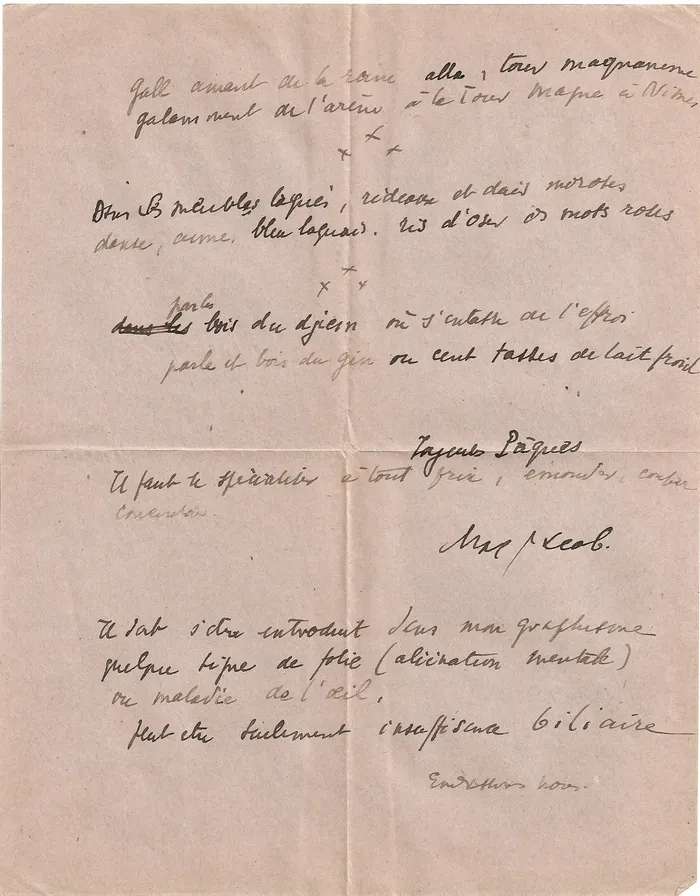 Gall amant de la reine alla, tour magnanime
galamment de l'arène à la Tour Magne à Nîmes
x x x
Dans ces meubles laqués, rideaux et dais moroses
danse, aime, bleu laquais, ris d'oser des mots roses
x x x
parles
dans les bois du djinn où s'entasse de l'effroi
parle et bois du gin ou cent tasses de lait froid
Joyeuses Pâques
Il faut se spécialiser à tout prix, émonder,
Max Jacob.
Il doit s'être introduit dans mon graphisme
quelque signe de folie (aliénation mentale)
ou maladie de l'œil,
peut etre seulement insuffisance biliaire